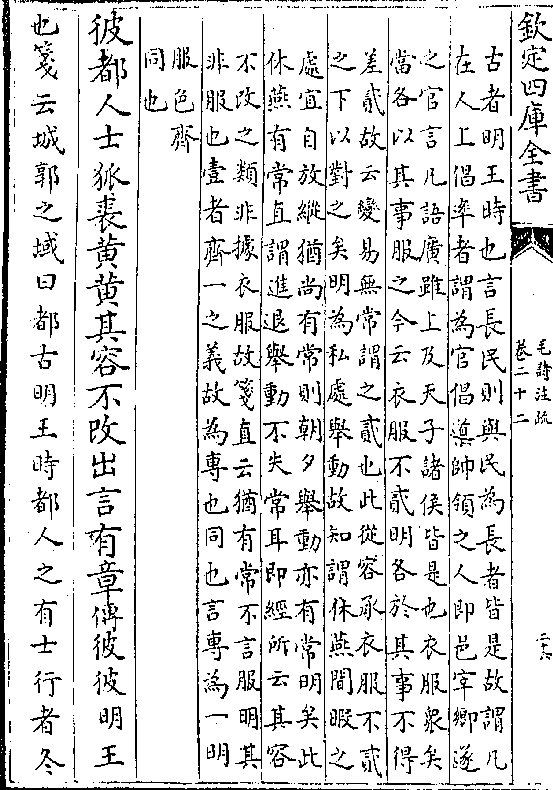 欽定四庫全書
毛詩注疏
卷二十二
古者明王時也言長民則與民為長者皆是故謂凡
在人上倡率者謂為官倡導帥領之人即邑宰鄉遂
之官言凡語廣雖上及天子諸侯皆是也衣服衆矣
當各以其事服之今云衣服不貳明各於其事不得
差貳故云變易無常謂之貳也此從容承衣服不貳
之下以對之矣明為私處舉動故知謂休燕間暇之
處宜自放縱猶尚有常則朝夕舉動亦有常明矣此
休燕有常直謂進退舉動不失常耳即經所云其容
不改之類非據衣服故箋直云猶有常不言服明其
非服也壹者齊一之義故為專也同也言專為一明
服色齊
同也
彼都人士狐裘黃黃其容不改出言有章傳彼彼明王
也箋云城郭之域曰都古明王時都人之有士行者冬